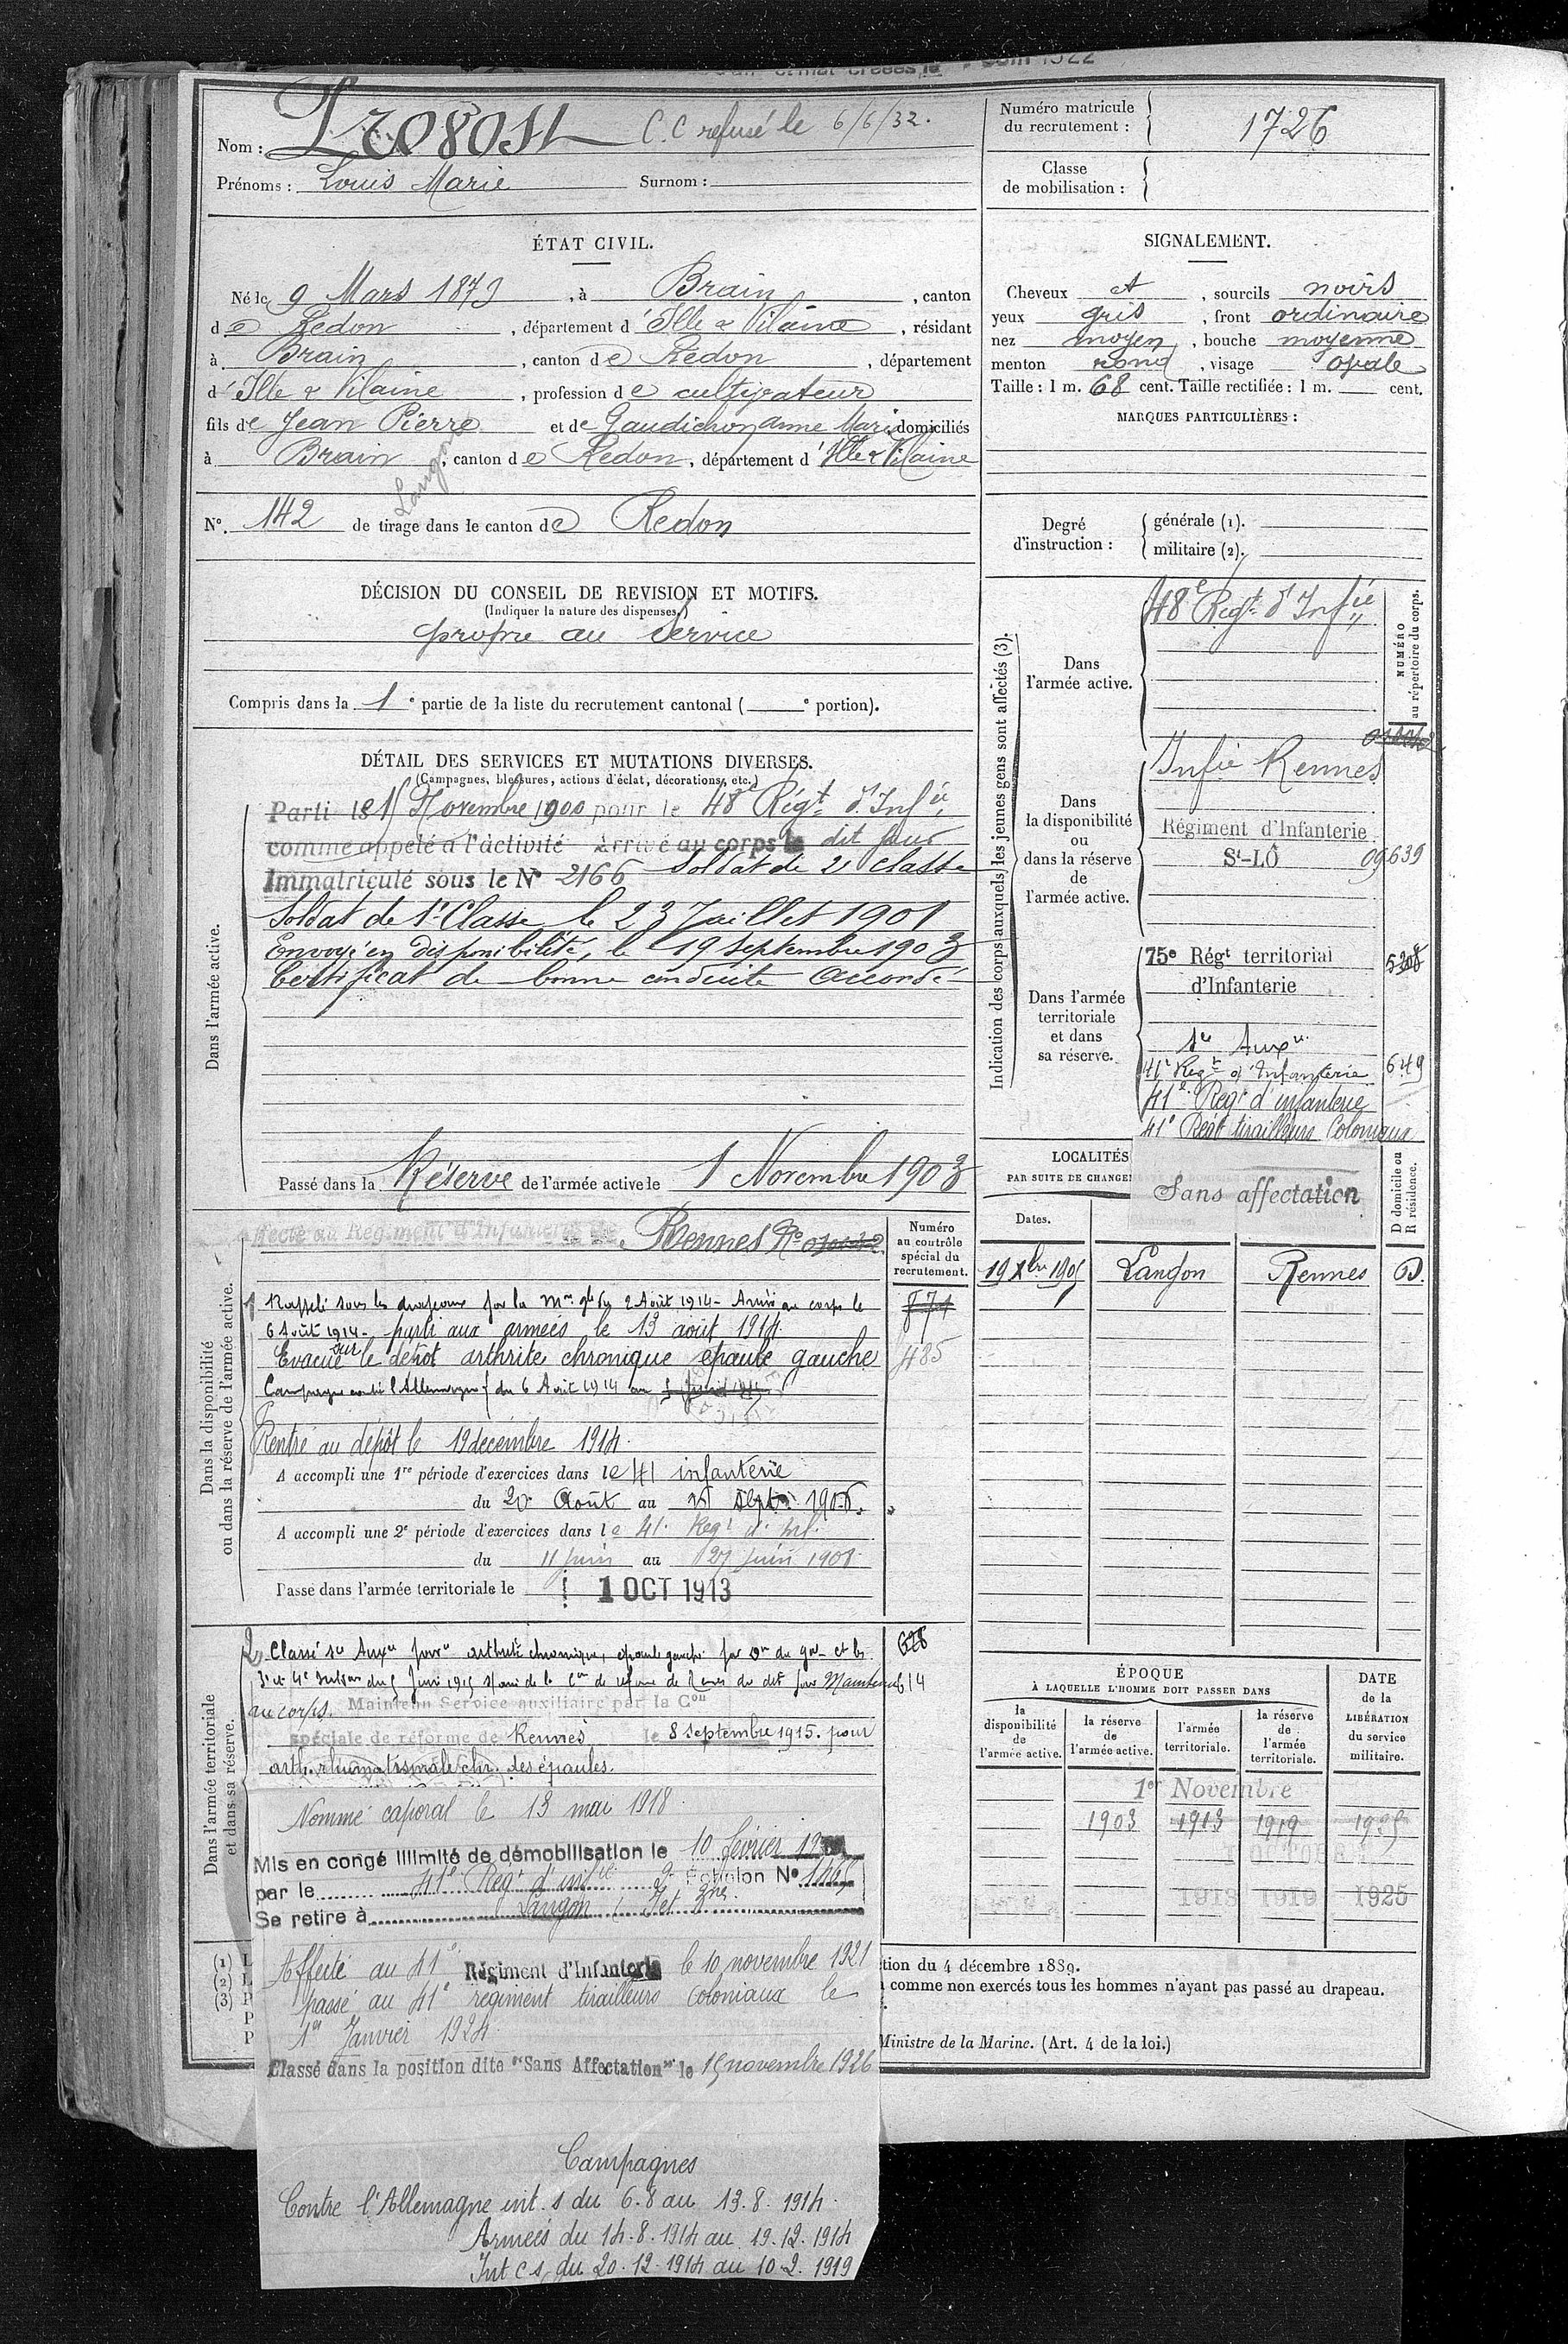 Nom : Provost C.C refusé le 6/6/32.
Prénoms : Louis Marie Surnom :
Numéro matricule du recrutement : 1726
Classe de mobilisation :
ÉTAT CIVIL.
Né le 9 Mars 1879, à Brain, canton
de Redon, département d'Ille & Vilaine, résidant
à Brain, canton de Redon, département
d'Ille & Vilaine, profession de cultivateur
fils de Jean Pierre et de Gaudichon anne Marie domiciliés
à Brain, canton de Redon, département d'Ille & Vilaine
Langon
N°. 142 de tirage dans le canton de Redon
SIGNALEMENT.
Cheveux et, sourcils noirs
yeux gris, front ordinaire
nez moyen, bouche moyenne
menton rond, visage ovale
Taille : 1 m. 68 cent. Taille rectifiée : 1 m. cent.
MARQUES PARTICULIÈRES :
Degré d'instruction :
générale (1).
militaire (2).
DÉCISION DU CONSEIL DE REVISION ET MOTIFS.
(Indiquer la nature des dispenses.)
propre au service
Compris dans la 1e partie de la liste du recrutement cantonal ( e portion).
DÉTAIL DES SERVICES ET MUTATIONS DIVERSES.
(Campagnes, blessures, actions d'éclat, décorations, etc.)
Dans l'armée active.
Parti le 15 Novembre 1900 pour le 48e Régt d'Infie
comme appelé à l'activité Arrivé au corps le dit jour
Immatriculé sous le N° 2166 Soldat de 2e classe
Soldat de 1e Classe le 23 Juillet 1901
Envoyé en disponibilité, le 19 septembre 1903
Certificat de bonne conduite Accordé
Passé dans la Réserve de l'armée active le 1 Novembre 1903
Indication des corps auxquels les jeunes gens sont affectés (3).
NUMÉRO au répertoire du corps.
Dans l'armée active.
48e Régt d'Infie
Dans la disponibilité ou dans la réserve de l'armée active.
Infie Rennes
Régiment d'Infanterie
St-LÔ 09639
Dans l'armée territoriale et dans sa réserve.
75e Régt territorial 5208
d'Infanterie
Sce Auxre
41e Regt d'Infanterie 649
41e Regt d'infanterie
41e Regt tirailleurs Coloniaux
Sans affectation
LOCALITÉS
PAR SUITE DE CHANGE
Dates.
D domicile ou R résidence.
19 Xbre 1905 Langon Rennes D.
Dans la disponibilité ou dans la réserve de l'armée active.
Affecté au Régiment d'Infanterie de Rennes No
Numéro au contrôle spécial du recrutement.
871
485
Rappelé sous les drapeaux par la Mon gle du 2 Août 1914 - Arrivé au corps le
6 Août 1914 - parti aux armées le 13 août 1914.
Evacué sur le dépôt arthrite chronique épaule gauche
Campagne contre l'Allemagne du 6 Août 1914 au
Rentré au dépôt le 19 décembre 1914.
A accompli une 1re période d'exercices dans le 41 infanterie
du 20 Août au sept. 1906.
A accompli une 2e période d'exercices dans le 41e Regt d'inf.
du 11 juin au 27 juin 1908
Passé dans l'armée territoriale le 1 OCT 1913
Dans l'armée territoriale et dans sa réserve.
Classé sce Auxre pour arthrite chronique, épaule gauche par
Maintenu 614
au corps. Maintenu Service auxiliaire par la Con
spéciale de réforme de Rennes le 8 septembre 1915. pour
arth. rhumatismale chr. des épaules.
Nommé caporal le 13 mai 1918.
Mis en congé illimité de démobilisation le 10 février
par le 41e Regt d'infie 2e Échelon N° 1465
Se retire à Langon, I et Vne.
Affecté au 41e Régiment d'Infanterie le 10 novembre 1921
passé au 41e régiment tirailleurs coloniaux le
1er Janvier 1924.
Classé dans la position dite "Sans Affectation" le 15 novembre 1926
Campagnes
Contre l'Allemagne int. s du 6.8 au 13.8.1914.
Armées du 14.8.1914 au 19.12.1914
Int C s, du 20.12.1914 au 10.2.1919
ÉPOQUE
À LAQUELLE L'HOMME DOIT PASSER DANS
la disponibilité de l'armée active.
la réserve de l'armée active.
l'armée territoriale.
la réserve de l'armée territoriale.
DATE de la LIBÉRATION du service militaire.
1er Novembre
1903 1913 1919 1925
1 OCTOBRE
1913 1919 1925
(1)
(2)
(3)
tion du 4 décembre 1889.
comme non exercés tous les hommes n'ayant pas passé au drapeau.
Ministre de la Marine. (Art. 4 de la loi.)